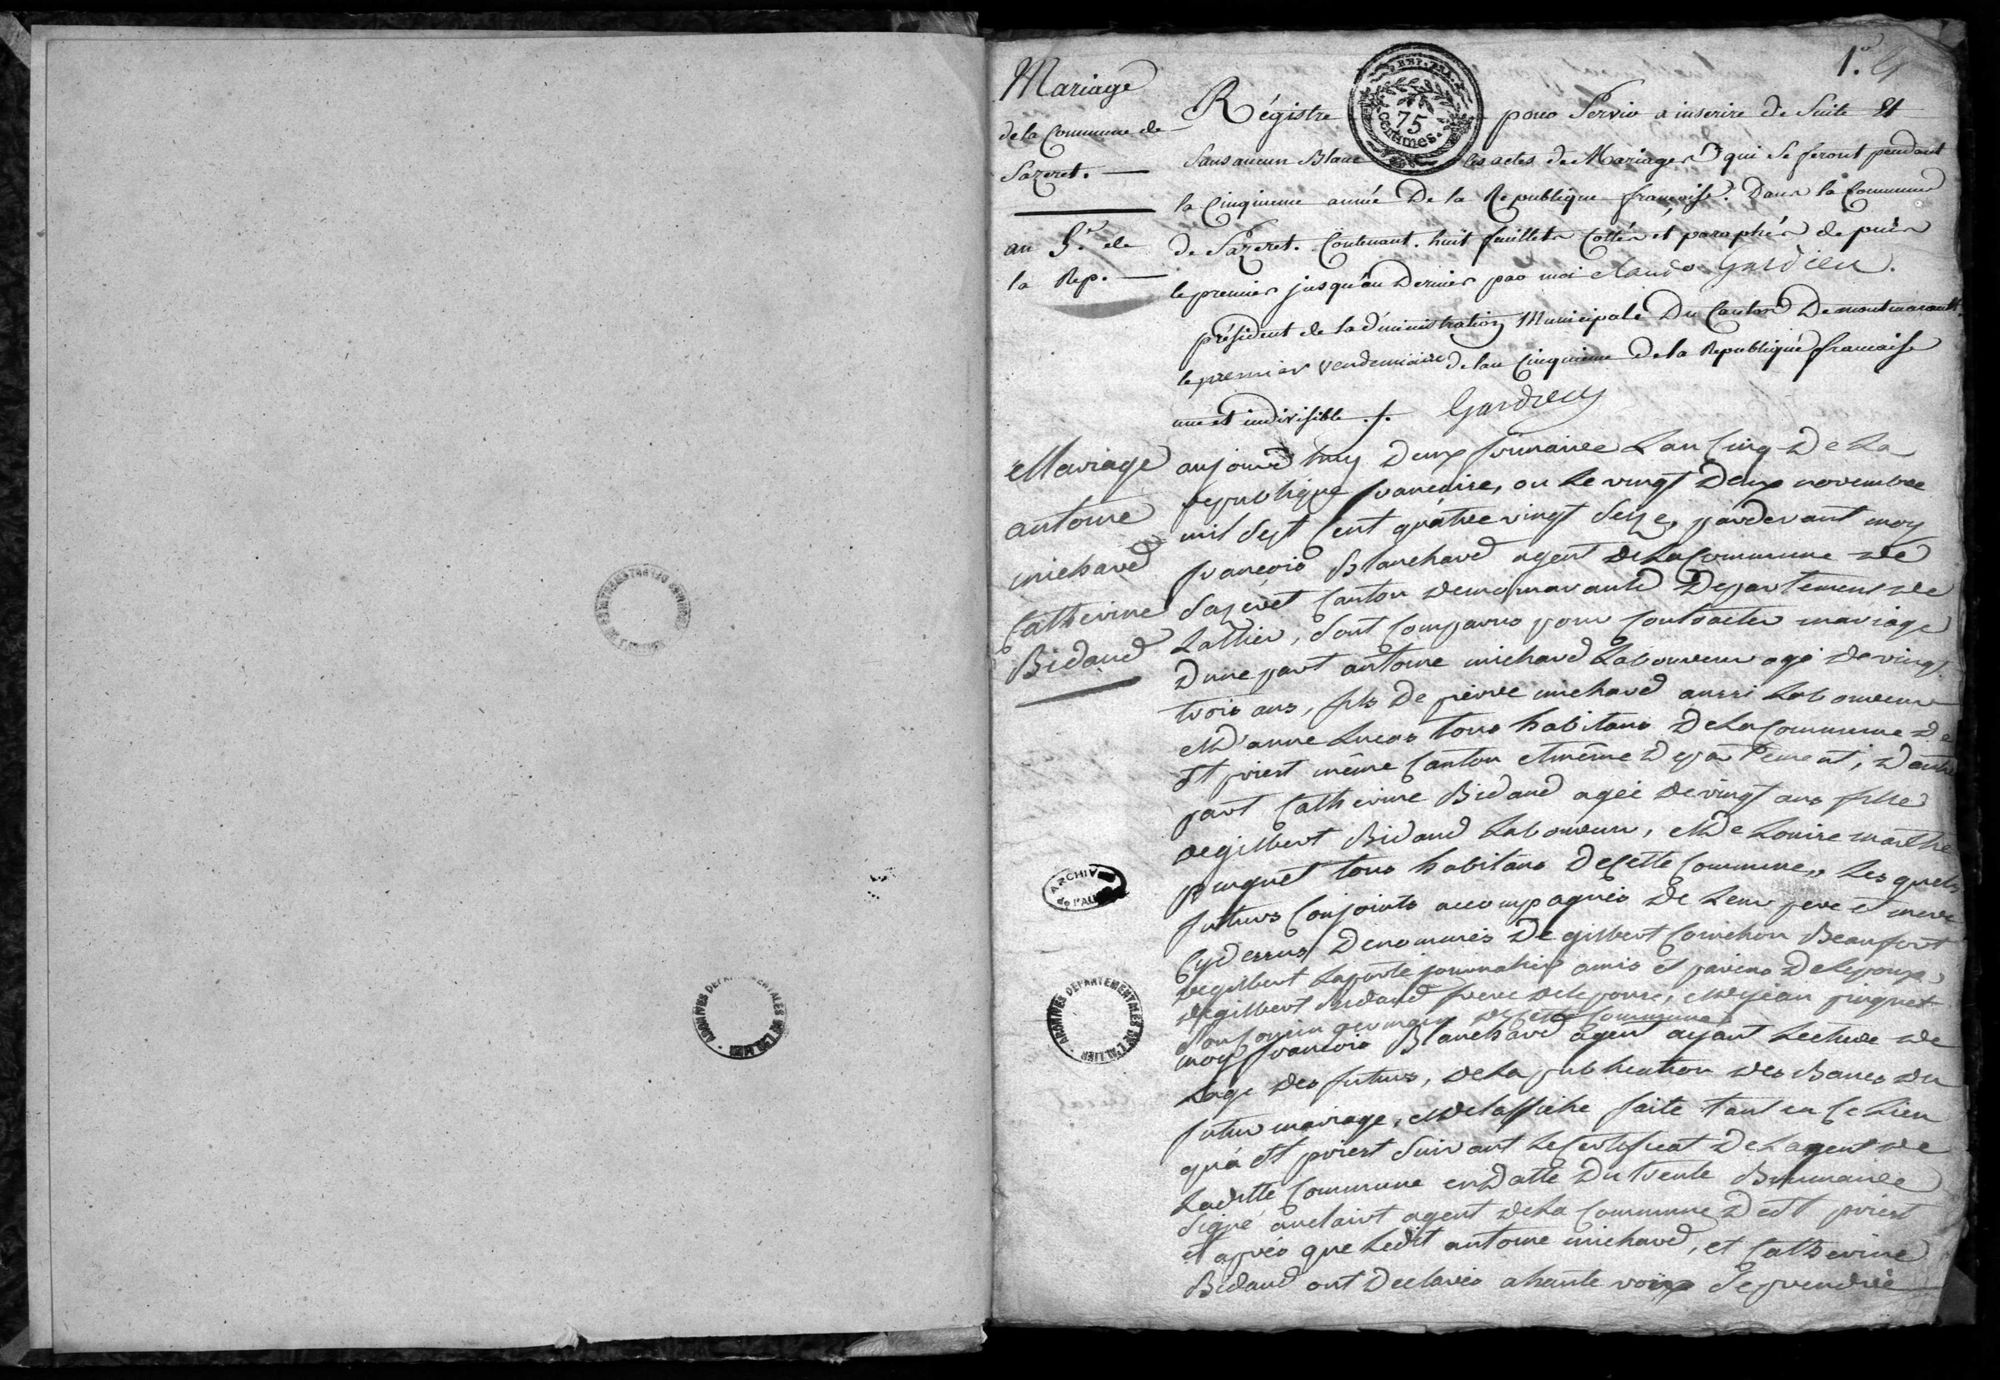 1.er
Mariage
de la Commune de
Sazeret.
au 5.e de
la Rep.
REP. FRA.
75
centimes.
Régistre pour Servir a inscrire de Suite Et
Sans aucun Blanc les actes de Mariages qui se feront pendant
la Cinquieme année De la Republique françoise. Dans la Commune
de Sazeret. Contenant huit feuillets Cottés et paraphés de puis
le premier jusqu'au Dernier par moi claude Gardien.
président de Ladministration Municipale Du Canton De montmarault.
le premier vendemiaire de lan Cinquieme de la Republique francaise
une et indivisible ./. Gardien
Mariage
antoine
michard
Catherine
Bidaud
aujourd'huy Deux frimaire Lan Cinq De La
republique francaise, ou Le vingt Deux novembre
mil Sept Cent quatre vingt Seize, pardevant moy
françois Blanchard agent De La Commune De
Sazeret Canton de Departement De
Lallier, Sont Comparus pour Contracter mariage
Dune part antoine michard Laboureur agé De vingt
trois ans, fils De pierre michard aussi Laboureur
et D'anne Lucas tous habitans De La Commune De
St priest même Canton et même Departement; D'autre
part Catherine Bidaud agée De vingt ans fille
De gilbert Bidaud Laboureur, et De Louise marthe
pinguet tous habitans De Cette Commune,, Les quels
futurs Conjoints accompagnés De Leur pere et mere
Cy dessus Denommés De gilbert Cornichon Beaufort
De gilbert Laporte journalier amis et parens De Lepoux,
De gilbert Bidaud frere De Lepouse, et De jean pinguet
Son Cousin germain De Cette Commune
moy francois Blanchard agent ayant Lecture De
Lage Des futurs, De La publication Des Bancs Du
futur mariage, et De Laffiche faite tant en Ce Lieu
qu'a St priest Suivant Le Certificat De Lagent De
Laditte Commune en Datte Du trente Brumaire
Signé auclairt agent De La Commune De St priest
et après que Ledit antoine michard, et Catherine
Bidaud ont Declarés a haute voix Se prendre
ARCHIVES
de l'ALLIER
ARCHIVES DEPARTEMENTALES DE L'ALLIER
ARCHIVES DEPARTEMENTALES DE L'ALLIER